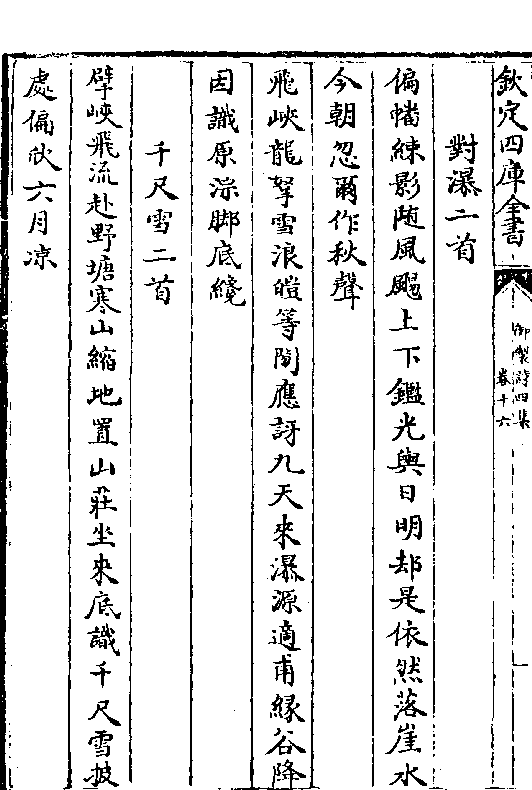 欽定四庫全書
御製詩四集
卷十六
對瀑二首
偏幡練影随風颺上下鑑光與日明却是依然落崖水
今朝忽爾作秋聲
飛峽龍拏雪浪皚等閒應訝九天來瀑源適甫縁谷降
因識原淙脚底繞
千尺雪二首
擘峽飛流赴野塘寒山縮地置山莊坐來底識千尺雪披
處偏欣六月凉